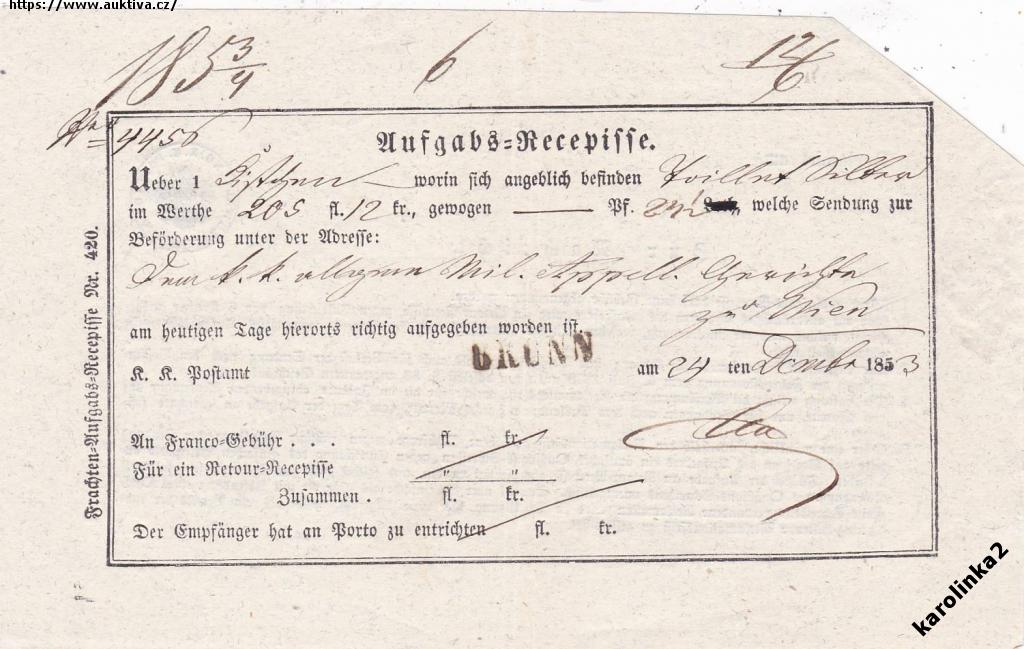 https://www.auktiva.cz/
1853/4 6 12/6
No 4456
Aufgabs-Recepisse.
Ueber 1 Kistchen worin sich angeblich befinden Silber
im Werthe 205 fl. 12 kr., gewogen — Pf. welche Sendung zur
Beförderung unter der Adresse:
Dem k. k. Mil. Appell. Gerichte
zu Wien
am heutigen Tage hierorts richtig aufgegeben worden ist.
BRÜNN
K. K. Postamt am 24 ten Dcmbr 1853
An Franco-Gebühr . . . fl. kr.
Für ein Retour-Recepisse " "
Zusammen . fl. kr.
Der Empfänger hat an Porto zu entrichten fl. kr.
Frachten-Aufgabs-Recepisse Nr. 420.
karolinka2